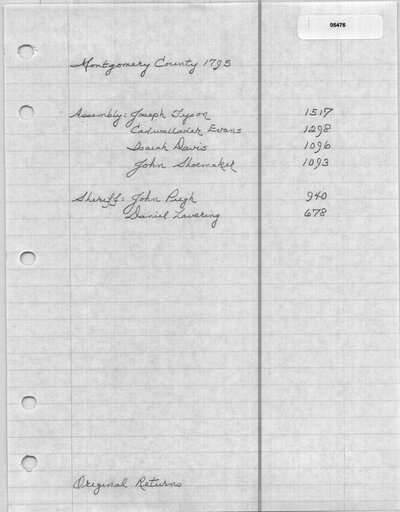 05476
Montgomery County 1795
Assembly: Joseph Tyson 1517
Cadwallader Evans 1298
Isaiah Davis 1096
John Shoemaker 1093
Sheriff: John Pugh 940
Daniel Levering 678
Original Returns